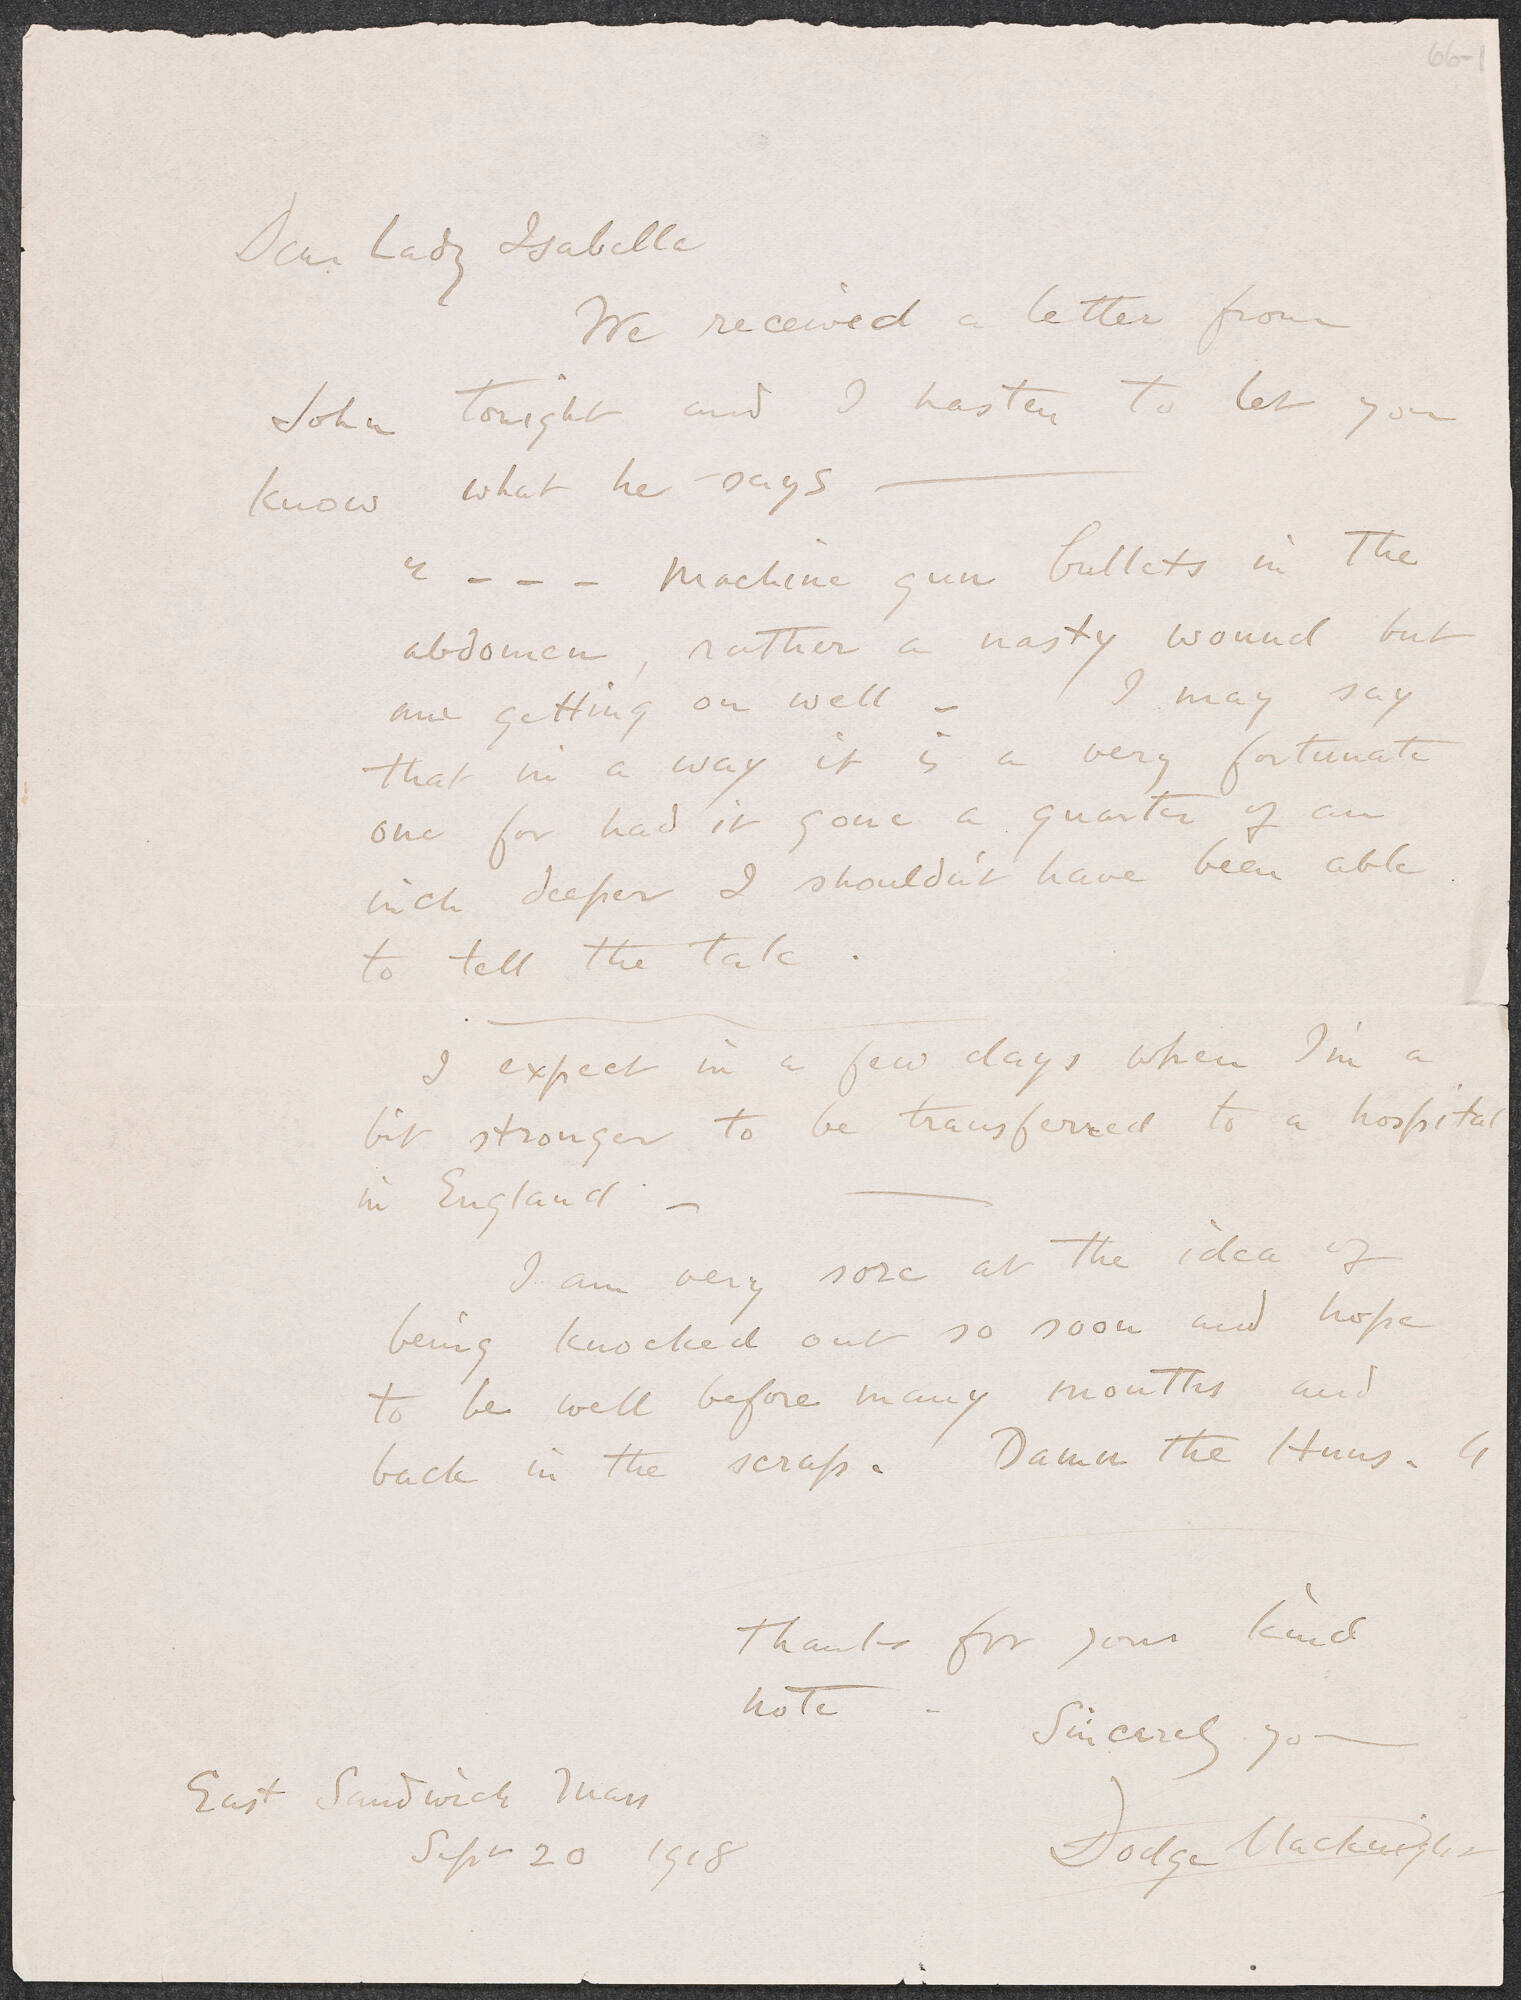 66-1
Dear Lady Isabella
We received a letter from
John tonight and I hasten to let you
know what he says —
" - - - Machine gun bullets in the
abdomen, rather a nasty wound but
am getting on well - I may say
that in a way it is a very fortunate
one for had it gone a quarter of an
inch deeper I shouldn't have been able
to tell the tale.
I expect in a few days when I'm a
bit stronger to be transferred to a hospital
in England - —
I am very sore at the idea of
being knocked out so soon and hope
to be well before many months and
back in the scrap. Damn the Huns. "
Thanks for your kind
note -
Sincerely yo—
East Sandwich Mass
Sept 20 1918
Dodge Macknight